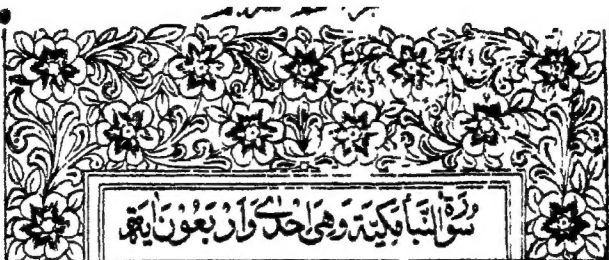 سُوْرَةُ النَّبَأِ مَكِّيَّةٌ وَهِيَ اِحْدٰى وَاَرْبَعُوْنَ اٰيَةً